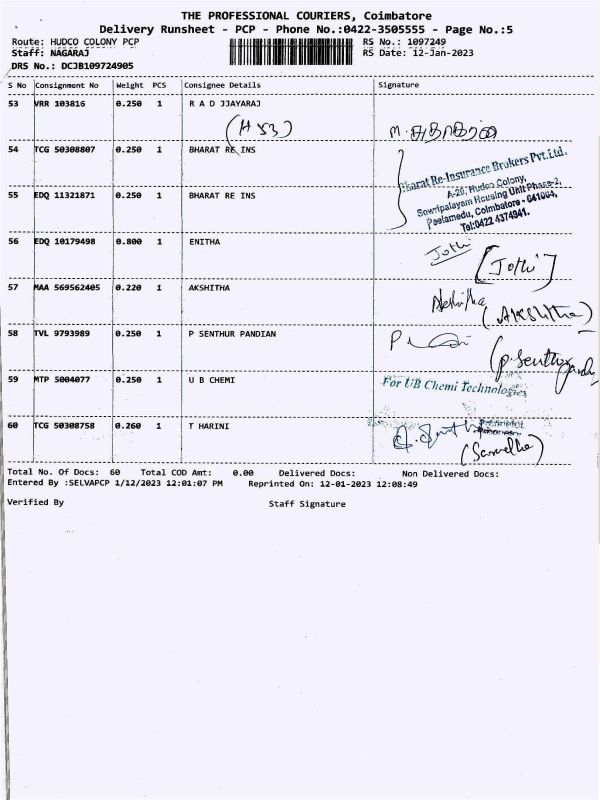 THE PROFESSIONAL COURIERS, Coimbatore
Delivery Runsheet - PCP - Phone No.:0422-3505555 - Page No.:5
Route: HUDCO COLONY PCP RS No.: 1097249
Staff: NAGARAJ RS Date: 12-Jan-2023
DRS No.: DCJB109724905
S No Consignment No Weight PCS Consignee Details Signature
53 VRR 103816 0.250 1 R A D JJAYARAJ
(H 53)
54 TCG 50308807 0.250 1 BHARAT RE INS
Bharat Re-Insurance Brokers Pvt.Ltd.
A-20, Hudco Colony,
Sowripalayam Housing Unit Phase-2,
Peelamedu, Coimbatore - 641004,
Tel:0422 4374941.
55 EDQ 11321871 0.250 1 BHARAT RE INS
56 EDQ 10179498 0.800 1 ENITHA
Jothi [Jothi]
57 MAA 569562405 0.220 1 AKSHITHA
Akshitha (AKSHITHA)
58 TVL 9793989 0.250 1 P SENTHUR PANDIAN
59 MTP 5004077 0.250 1 U B CHEMI
For UB Chemi Technologies
60 TCG 50308758 0.260 1 T HARINI
Total No. Of Docs: 60 Total COD Amt: 0.00 Delivered Docs: Non Delivered Docs:
Entered By :SELVAPCP 1/12/2023 12:01:07 PM Reprinted On: 12-01-2023 12:08:49
Verified By Staff Signature